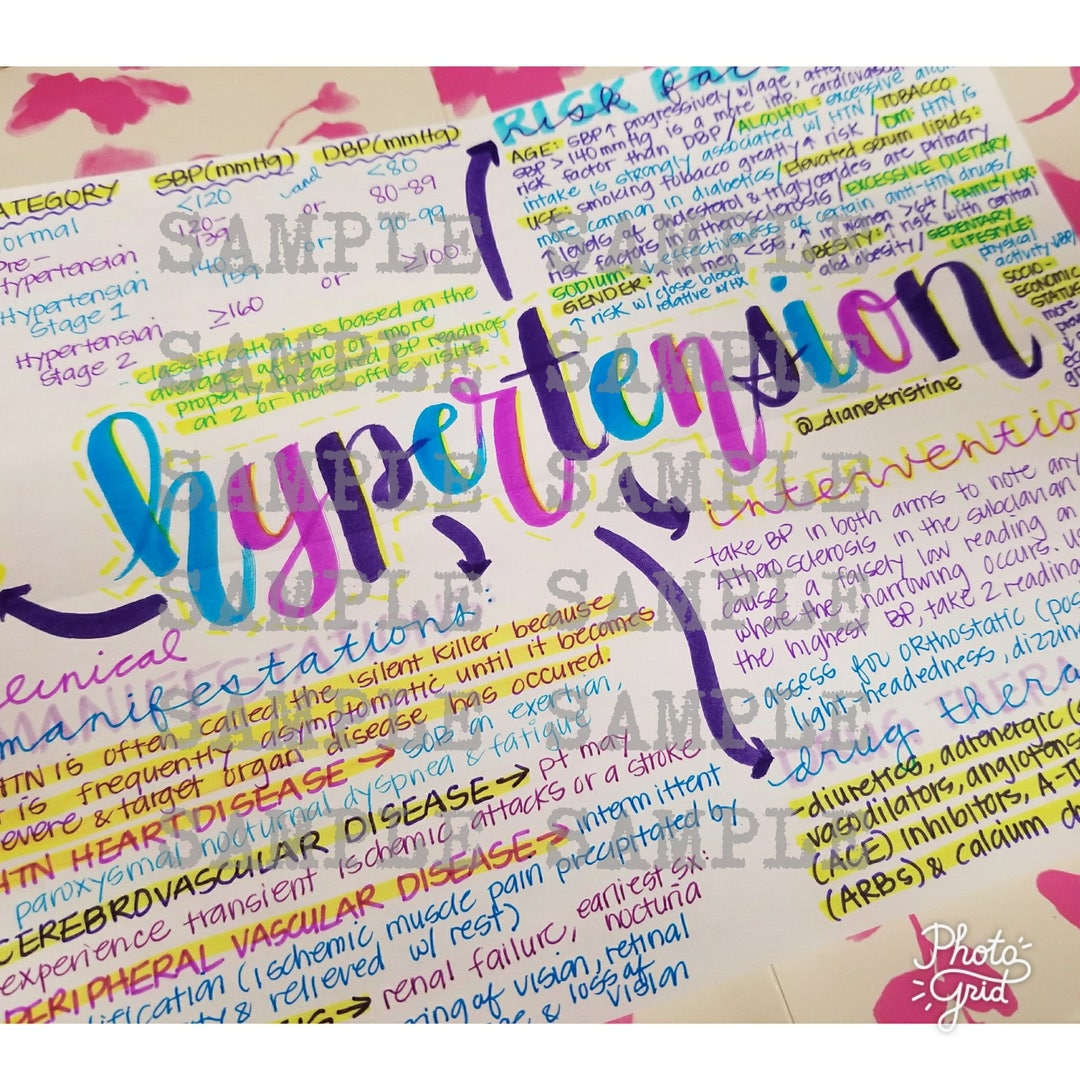 ATEGORY SBP(mmHg) DBP(mmHg)
ormal <120 and <80
Pre-hypertension 120-139 or 80-89
Hypertension Stage 1 140-159 or 90-99
Hypertension Stage 2 ≥160 or ≥100
- classification is based on the
average of two or more
properly measured BP readings
on 2 or more office visits.
RISK
AGE: SBP ↑ progressively w/age, after
SBP > 140 mmHg is a more imp. cardiovasc
risk factor than DBP / ALCOHOL: excessive alco
intake is strongly associated w/ HTN / TOBACCO
USE: smoking tobacco greatly ↑ risk / DM: HTN is
more common in diabetics / Elevated serum lipids:
↑ levels of cholesterol & triglycerides are primary
risk factors in atherosclerosis / EXCESSIVE DIETARY
SODIUM: ↓ effectiveness of certain anti-HTN drugs/
GENDER: ↑ in men <55, ↑ in women >64 / FAMILY HX:
↑ risk w/ close blood relative w/HX
OBESITY: ↑ risk with central
abd obesity / SEDENTARY
LIFESTYLE:
physical
activity
SOCIO-
ECONOMIC
STATUS
more
hypertension
@_dianekristine
interventio
-take BP in both arms to note any
Atherosclerosis in the subclavian
cause a falsely low reading on
where the narrowing occurs. U
the highest BP, take 2 reading
- assess for orthostatic (pos
light-headedness, dizzin
drug thera
-diuretics, adrenergic (
vasodilators, angiotens
(ACE) inhibitors, A-II
(ARBs) & calcium
clinical
MANIFESTATIONS
manifestations:
HTN is often called the 'silent killer' because
it is frequently asymptomatic until it becomes
evere & target organ disease has occured.
HTN HEART DISEASE → SOB on exertion,
paroxysmal nocturnal dyspnea & fatigue
CEREBROVASCULAR DISEASE → pt may
experience transient ischemic attacks or a stroke
PERIPHERAL VASCULAR DISEASE → intermittent
dification (ischemic muscle pain precipitated by
ty & relieved w/ rest)
→ renal failure, earliest sx:
nocturia
ring of vision, retinal
& loss of
vision
SAMPLE SAMPLE
SAMPLE SAMPLE
SAMPLE SAMPLE
SAMPLE SAMPLE
SAMPLE SAMPLE
SAMPLE SAMPLE
Photo
Grid